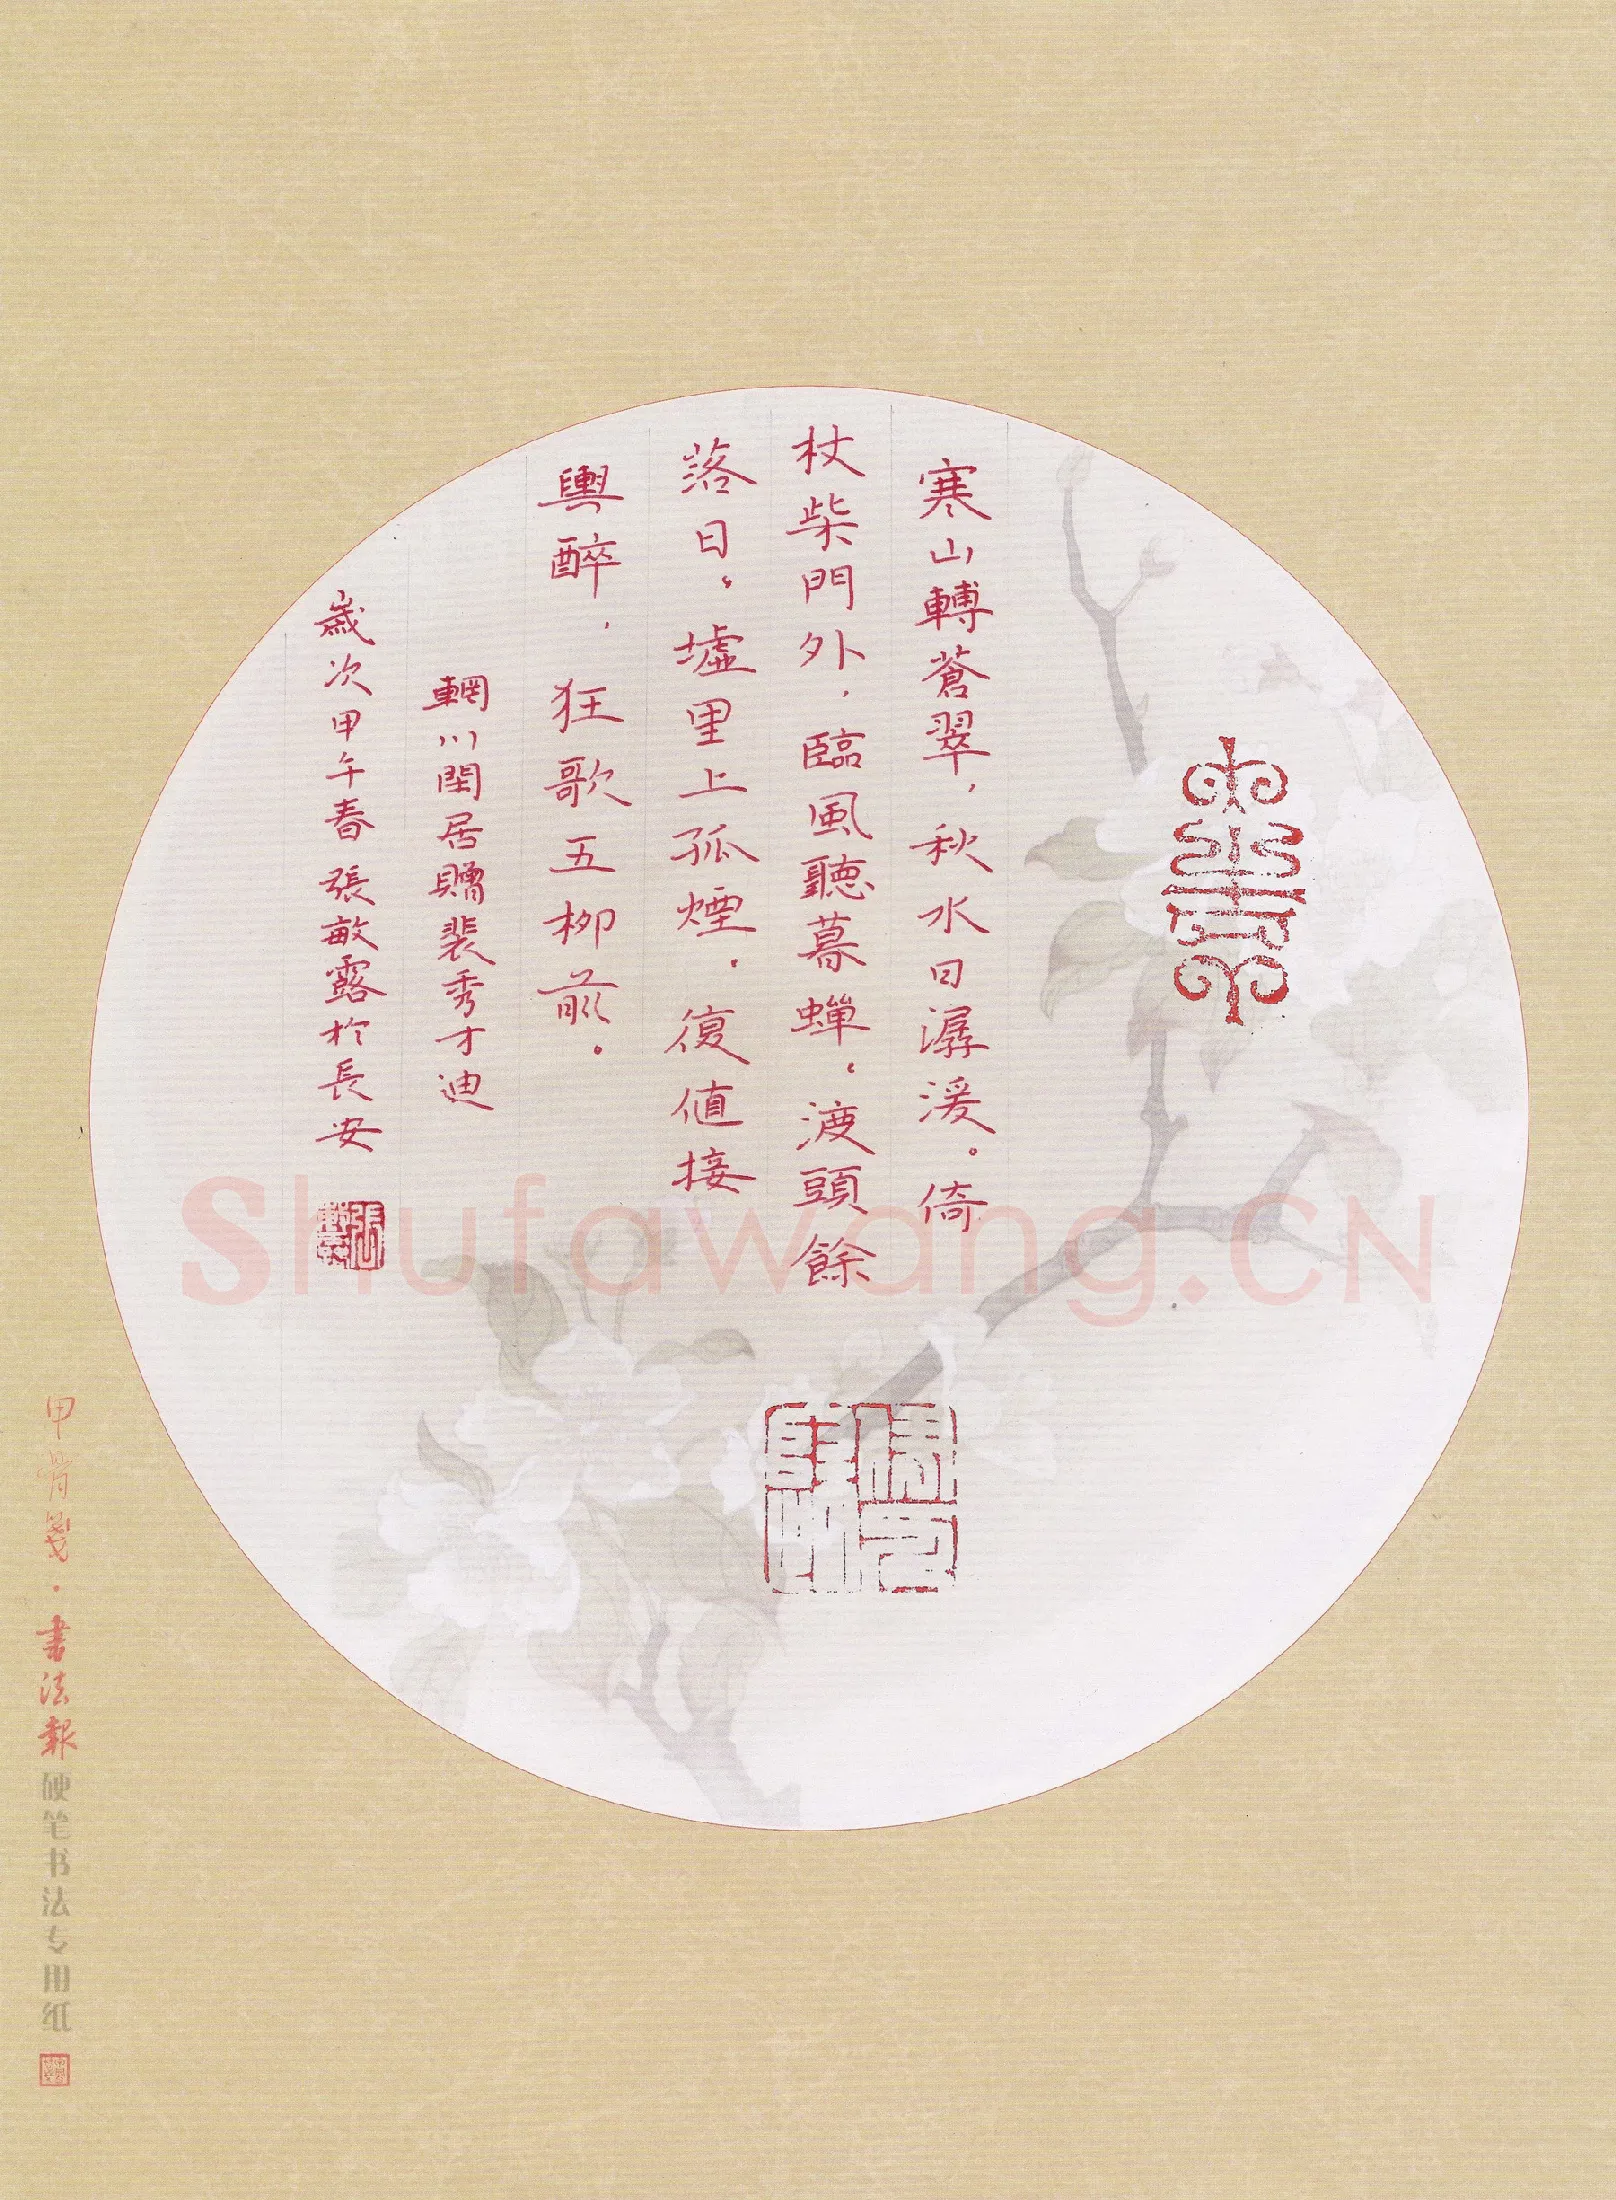 寒山轉蒼翠，秋水日潺湲。倚
杖柴門外，臨風聽暮蟬。渡頭餘
落日。墟里上孤煙。復值接
輿醉，狂歌五柳前。
輞川閏居贈裴秀才迪
歲次甲午春張敏露於長安
甲骨箋·書法報硬笔书法专用纸
Shufawang.CN